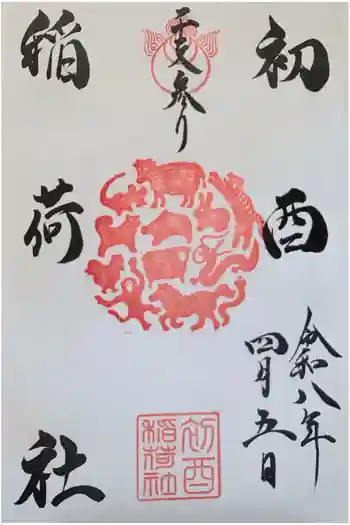 初酉
干支参り
稲荷社
令和八年
四月五日
初酉
稲荷社